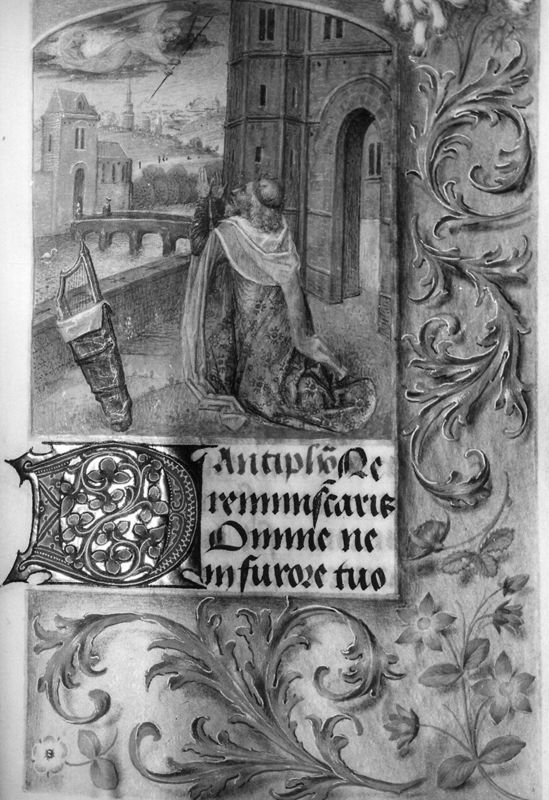 Antiphō Ne
reminiſcaris
DOmine ne
in furore tuo